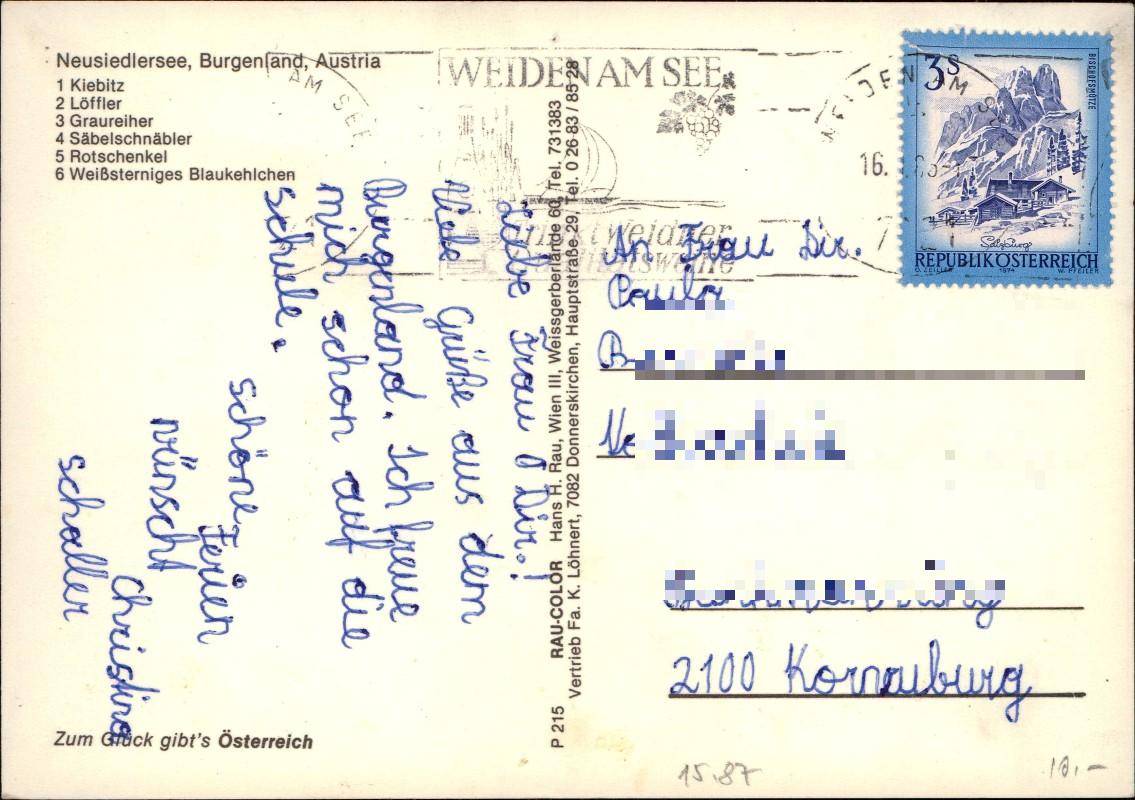 Neusiedlersee, Burgenland, Austria
1 Kiebitz
2 Löffler
3 Graureiher
4 Säbelschnäbler
5 Rotschenkel
6 Weißsterniges Blaukehlchen
AM SEE
WEIDEN AM SEE
WEIDEN AM SEE
16.
Trinkt Weidner
Qualitätsweine
3S
BISCHOFSMÜTZE
Salzburg
REPUBLIK ÖSTERREICH
O. ZEILLER 1974 W. PFEILER
Liebe Frau Dir.!
Viele Grüße aus dem
Burgenland. Ich freue
mich schon auf die
Schule.
Schöne Ferien
wünscht
Christina
Schaller
P 215 RAU-COLOR Hans H. Rau, Wien III, Weissgerberlände 60, Tel. 731383
Vertrieb Fa. K. Löhnert, 7082 Donnerskirchen, Hauptstraße 29, Tel. 0 26 83 / 85 28
An Frau Dir.
Paula
2100 Korneuburg
Zum Glück gibt's Österreich
15.87
10,-